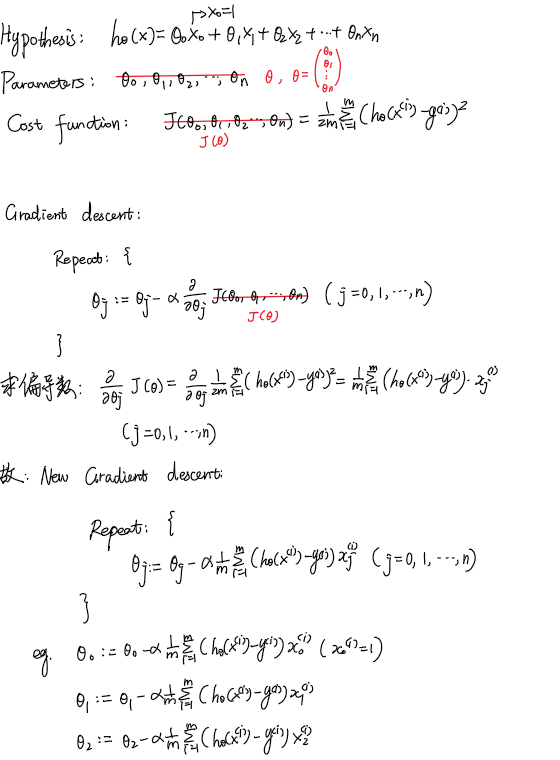 ↱x₀=1
Hypothesis: hθ(x)=θ₀x₀+θ₁x₁+θ₂x₂+⋯+θₙxₙ
Parameters: θ₀,θ₁,θ₂,⋯,θₙ θ, θ=(θ₀ θ₁ ⋮ θₙ)
Cost function: J(θ₀,θ₁,θ₂⋯,θₙ) = 1/2m ∑ᵢ₌₁ᵐ (hθ(x⁽ⁱ⁾)-y⁽ⁱ⁾)²
J(θ)
Gradient descent:
Repeat: {
θⱼ := θⱼ - α ∂/∂θⱼ J(θ₀,θ₁,⋯,θₙ) (j=0,1,⋯,n)
J(θ)
}
求偏导数: ∂/∂θⱼ J(θ) = ∂/∂θⱼ 1/2m ∑ᵢ₌₁ᵐ (hθ(x⁽ⁱ⁾)-y⁽ⁱ⁾)² = 1/m ∑ᵢ₌₁ᵐ (hθ(x⁽ⁱ⁾)-y⁽ⁱ⁾)·xⱼ⁽ⁱ⁾
(j=0,1,⋯,n)
故: New Gradient descent:
Repeat: {
θⱼ := θⱼ - α 1/m ∑ᵢ₌₁ᵐ (hθ(x⁽ⁱ⁾)-y⁽ⁱ⁾) xⱼ⁽ⁱ⁾ (j=0,1,⋯,n)
}
eg. θ₀ := θ₀ - α 1/m ∑ᵢ₌₁ᵐ (hθ(x⁽ⁱ⁾)-y⁽ⁱ⁾) x₀⁽ⁱ⁾ (x₀⁽ⁱ⁾=1)
θ₁ := θ₁ - α 1/m ∑ᵢ₌₁ᵐ (hθ(x⁽ⁱ⁾)-y⁽ⁱ⁾) x₁⁽ⁱ⁾
θ₂ := θ₂ - α 1/m ∑ᵢ₌₁ᵐ (hθ(x⁽ⁱ⁾)-y⁽ⁱ⁾) x₂⁽ⁱ⁾